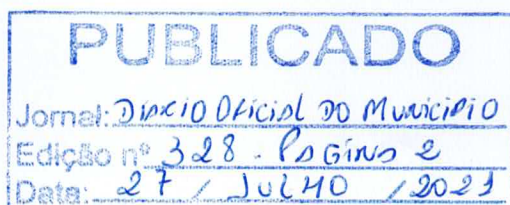 PUBLICADO
Jornal: DIÁRIO OFICIAL DO MUNICIPIO
Edição nº 328 - PÁGINA 2
Data: 27 / JULHO / 2021